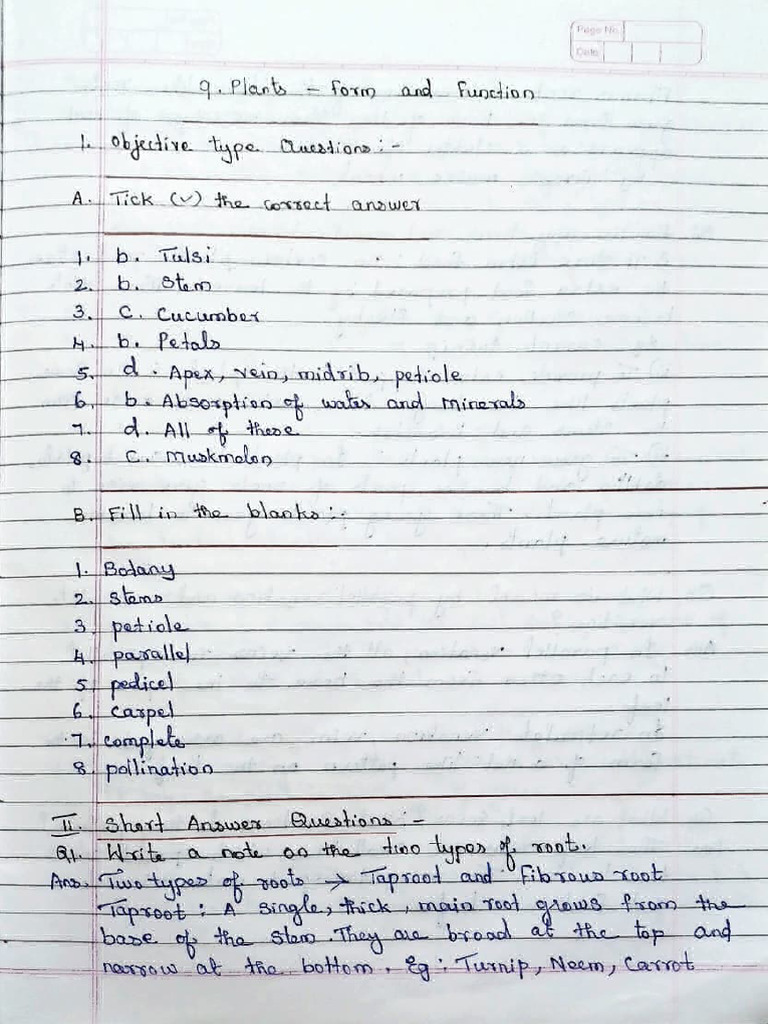 Page No.
Date
9. Plants - Form and Function
1. Objective type Questions:-
A. Tick (✓) the correct answer
1. b. Tulsi
2. b. Stem
3. C. Cucumber
4. b. Petals
5. d. Apex, vein, midrib, petiole
6. b. Absorption of water and Minerals
7. d. All of these
8. C. Muskmelon
B. Fill in the blanks:-
1. Botany
2. Stems
3. petiole
4. parallel
5. pedicel
6. carpel
7. complete
8. pollination
II. Short Answer Questions:-
Q1. Write a note on the two types of root.
Ans. Two types of roots → Taproot and Fibrous root
Taproot: A single, thick, main root grows from the
base of the stem. They are broad at the top and
narrow at the bottom. Eg: Turnip, Neem, Carrot